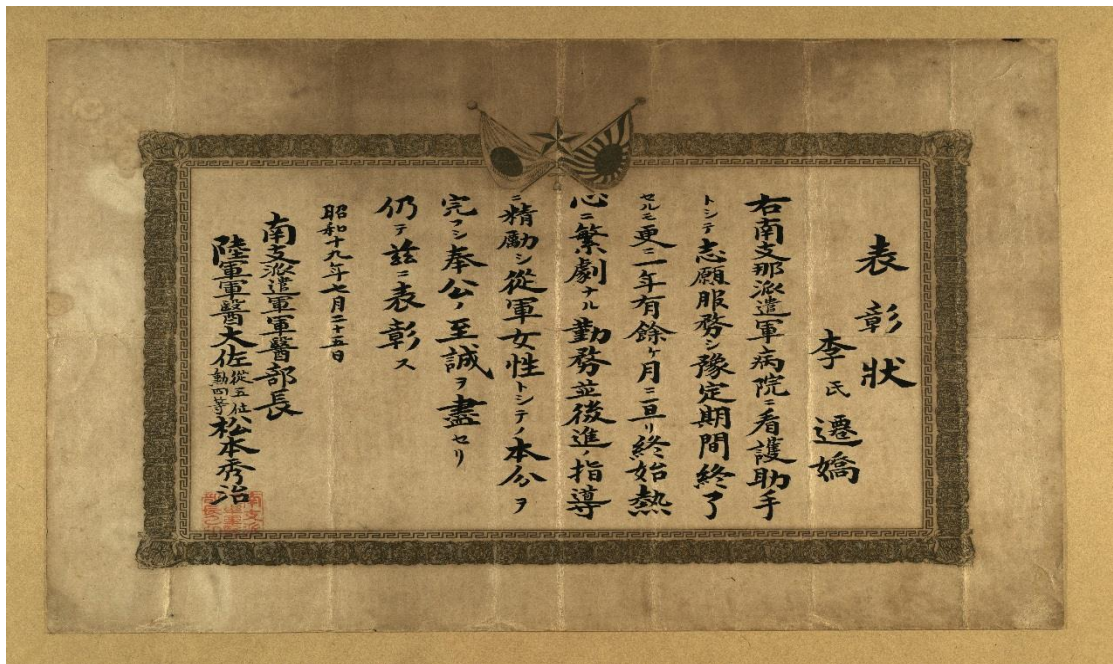 表彰状
李氏遷嬌
右南支那派遣軍病院ニ看護助手
トシテ志願服務シ豫定期間終了
セルモ更ニ一年有餘ヶ月ニ亘リ終始熱
心ニ繁劇ナル勤務並後進ノ指導
ニ精勵シ從軍女性トシテノ本分ヲ
完フシ奉公ノ至誠ヲ盡セリ
仍テ玆ニ表彰ス
昭和十九年七月二十五日
南支派遣軍軍醫部長
陸軍軍醫大佐從五位勳四等松本秀治